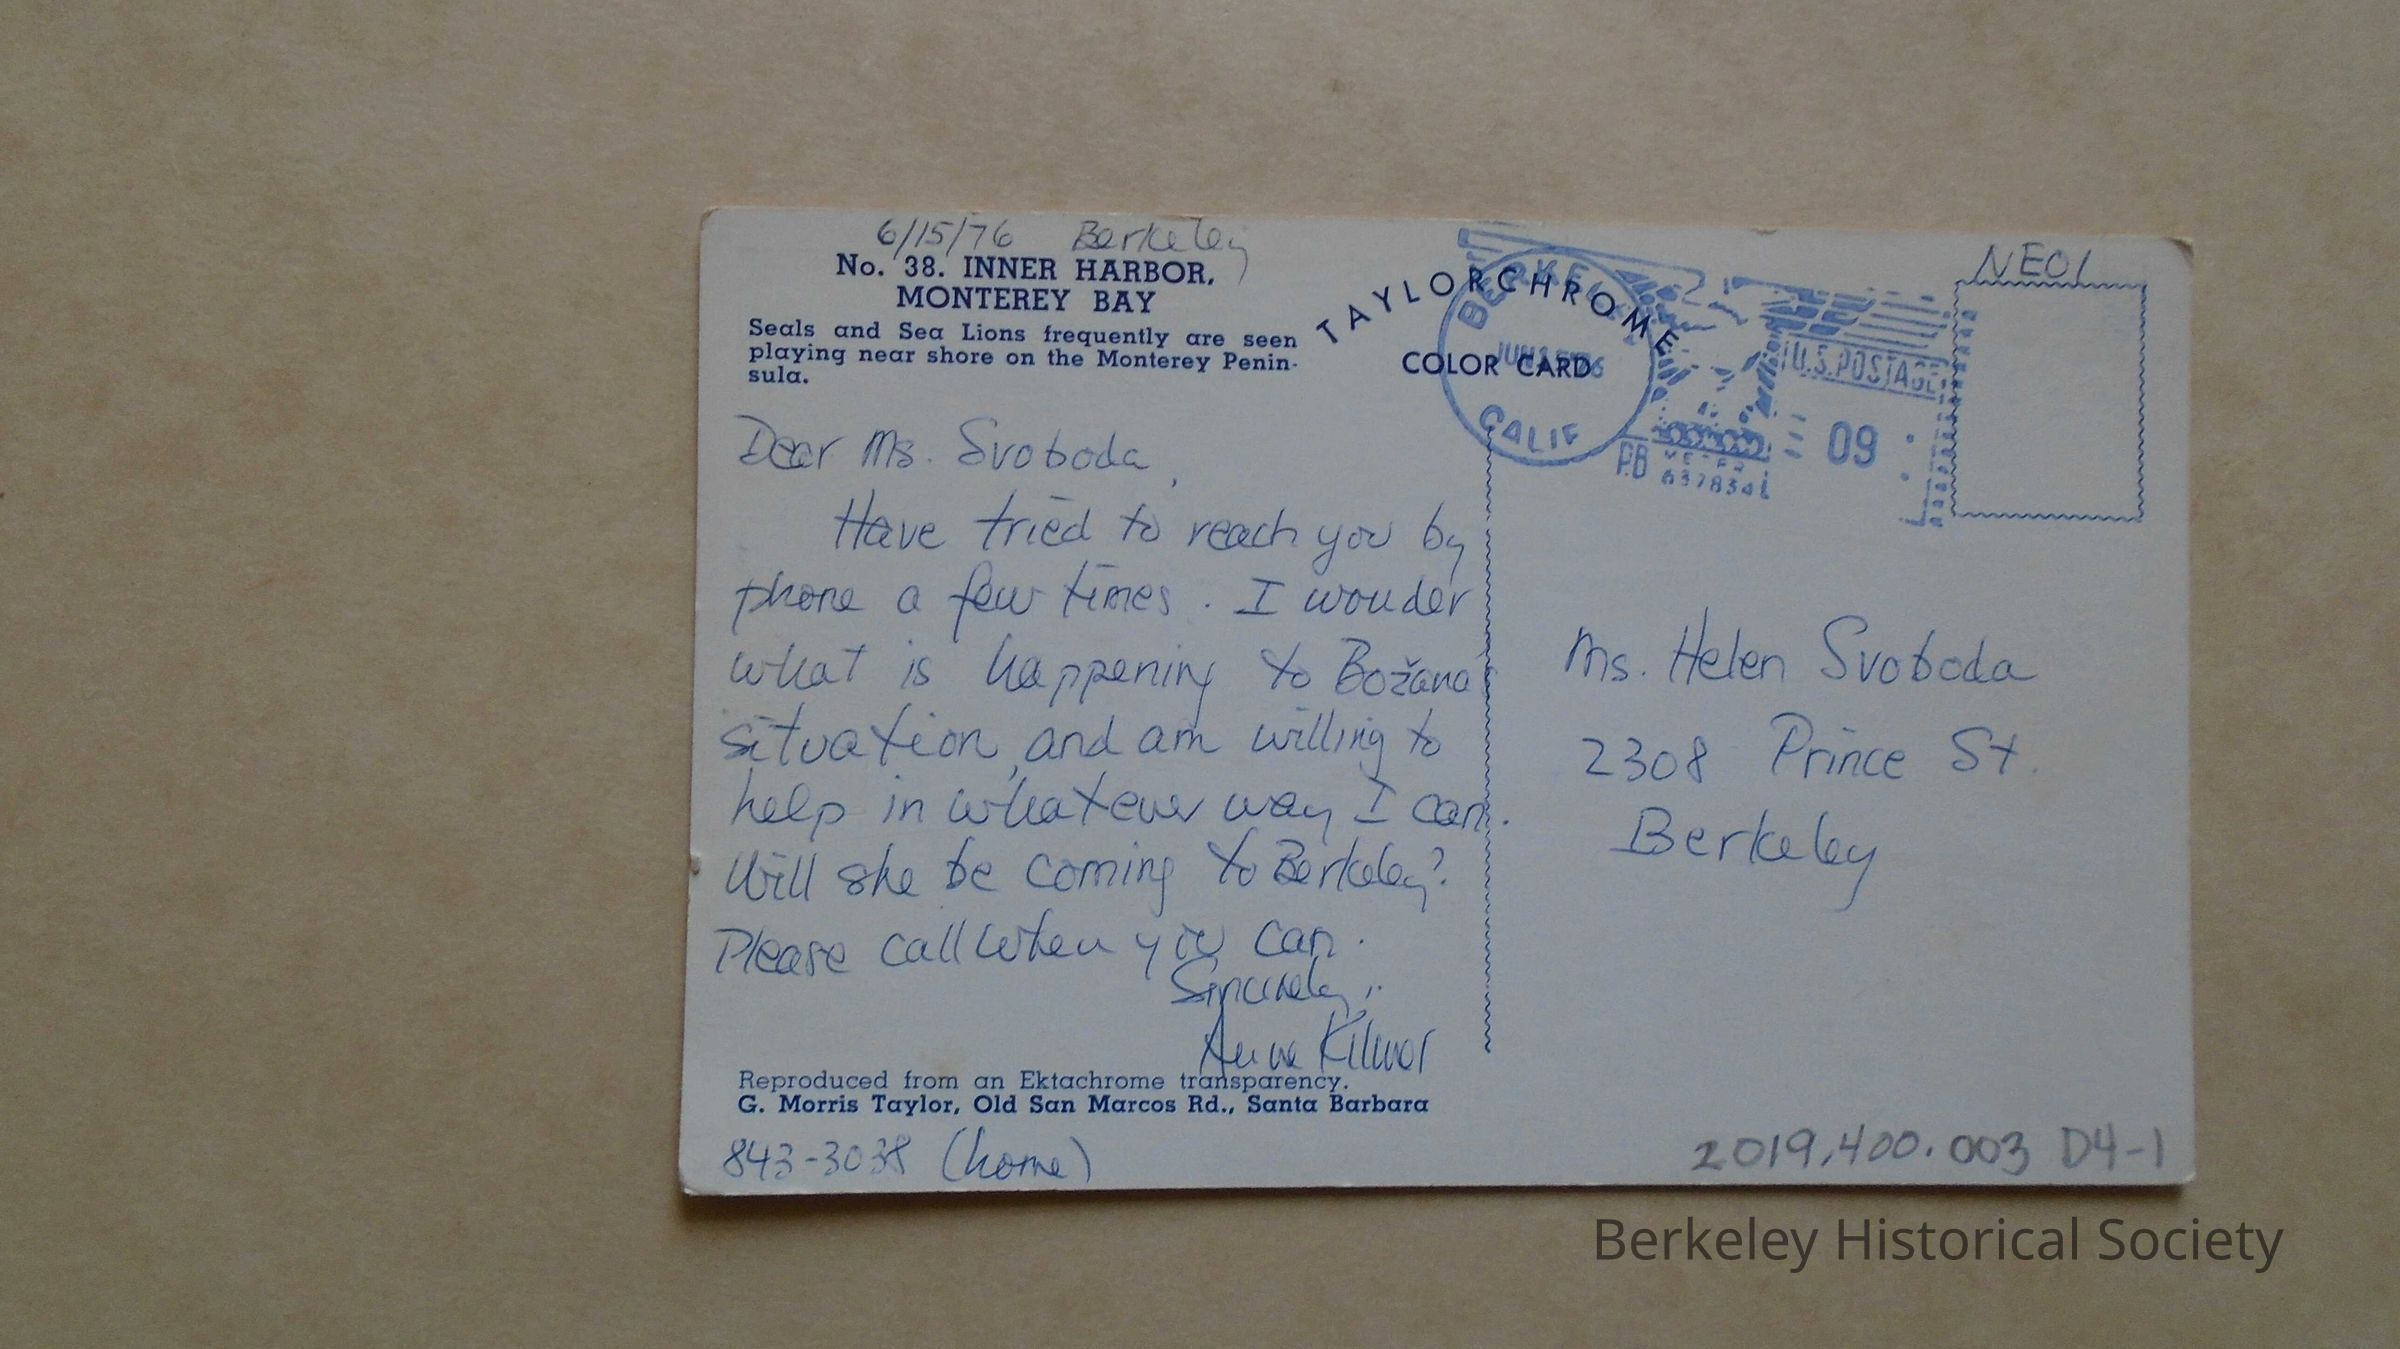 6/15/76 Berkeley
No. 38. INNER HARBOR,
MONTEREY BAY
Seals and Sea Lions frequently are seen
playing near shore on the Monterey Penin-
sula.
TAYLORCHROME
COLOR CARD
BERKELEY
CALIF
U.S. POSTAGE
09
P.B.
METER
NE01
Dear Ms. Svoboda,
Have tried to reach you by
phone a few times. I wonder
what is happening to Božana's
situation, and am willing to
help in whatever way I can.
Will she be coming to Berkeley?
Please call when you can.
Sincerely,
Anne Kilmer
Reproduced from an Ektachrome transparency.
G. Morris Taylor, Old San Marcos Rd., Santa Barbara
843-3038 (home)
Ms. Helen Svoboda
2308 Prince St.
Berkeley
2019.400.003 D4-1
Berkeley Historical Society